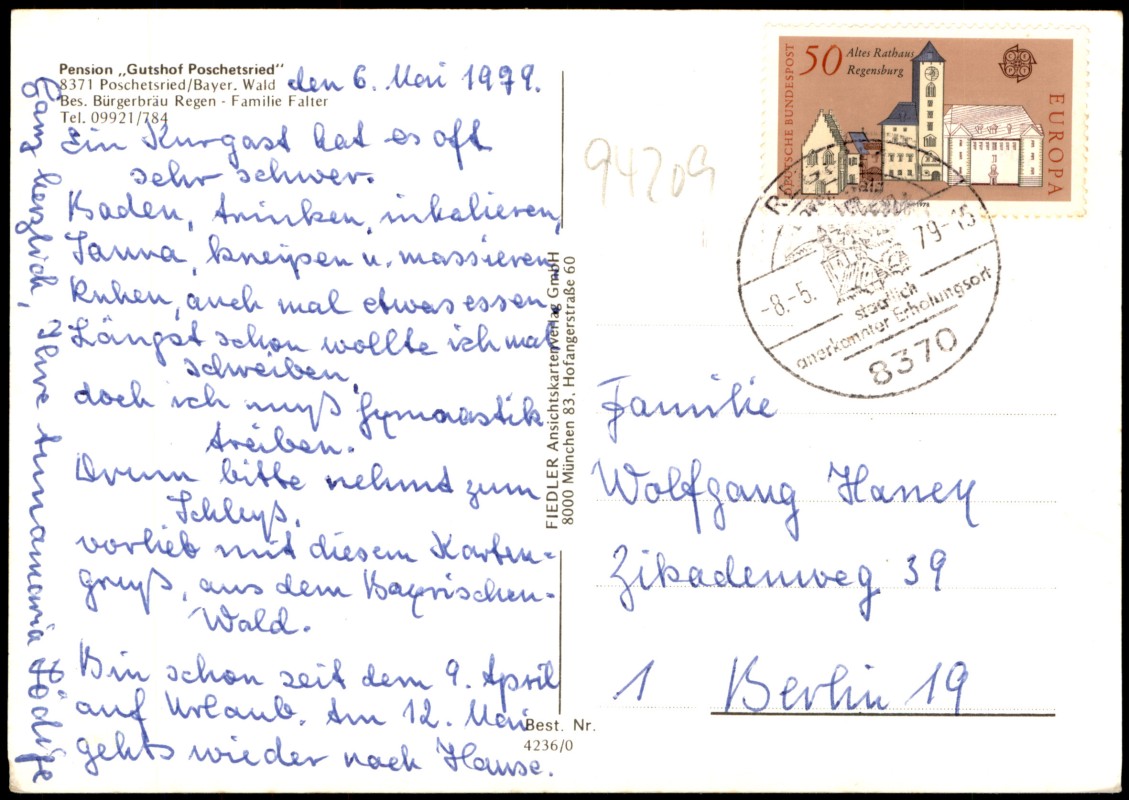 Pension „Gutshof Poschetsried"
8371 Poschetsried/Bayer. Wald
Bes. Bürgerbräu Regen - Familie Falter
Tel. 09921/784
den 6. Mai 1979.
Ein Kurgast hat es oft
sehr schwer.
Baden, trinken, inhalieren,
Sauna, kneipen u. massieren
Ruhen, auch mal etwas essen,
Längst schon wollte ich mal
schreiben,
doch ich muß Gymnastik
treiben.
Drum bitte nehmt zum
Schluß,
vorlieb mit diesem Karten-
gruß, aus dem Bayrischen-
Wald.
Bin schon seit dem 9. April
auf Urlaub. Am 12. Mai
gehts wieder nach Hause.
Ganz herzlich, Ihre Annamaria
FIEDLER Ansichtskartenverlag GmbH
8000 München 83. Hofangerstraße 60
Best. Nr.
4236/0
94209
DEUTSCHE BUNDESPOST
50
Altes Rathaus
Regensburg
EUROPA
-8.-5.
79-15
staatlich
anerkannter Erholungsort
8370
Familie
Wolfgang Haney
Zikadenweg 39
1 Berlin 19